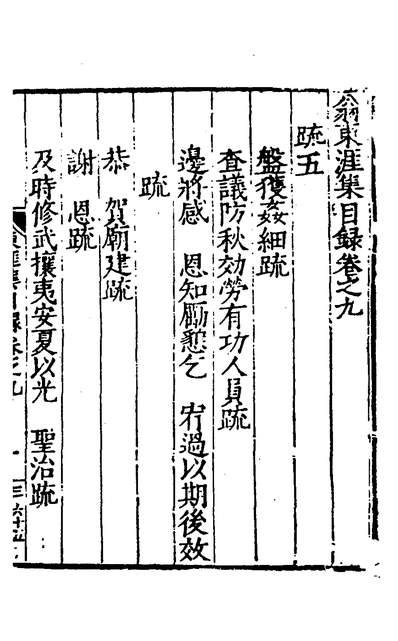 翁東涯集目録卷之九
疏五
盤獲姦細疏
查議防秋効勞有功人員疏
邊將感 恩知勵懇乞 宥過以期後效
疏
恭 賀廟建疏
謝 恩疏
及時修武攘夷安夏以光 聖治疏